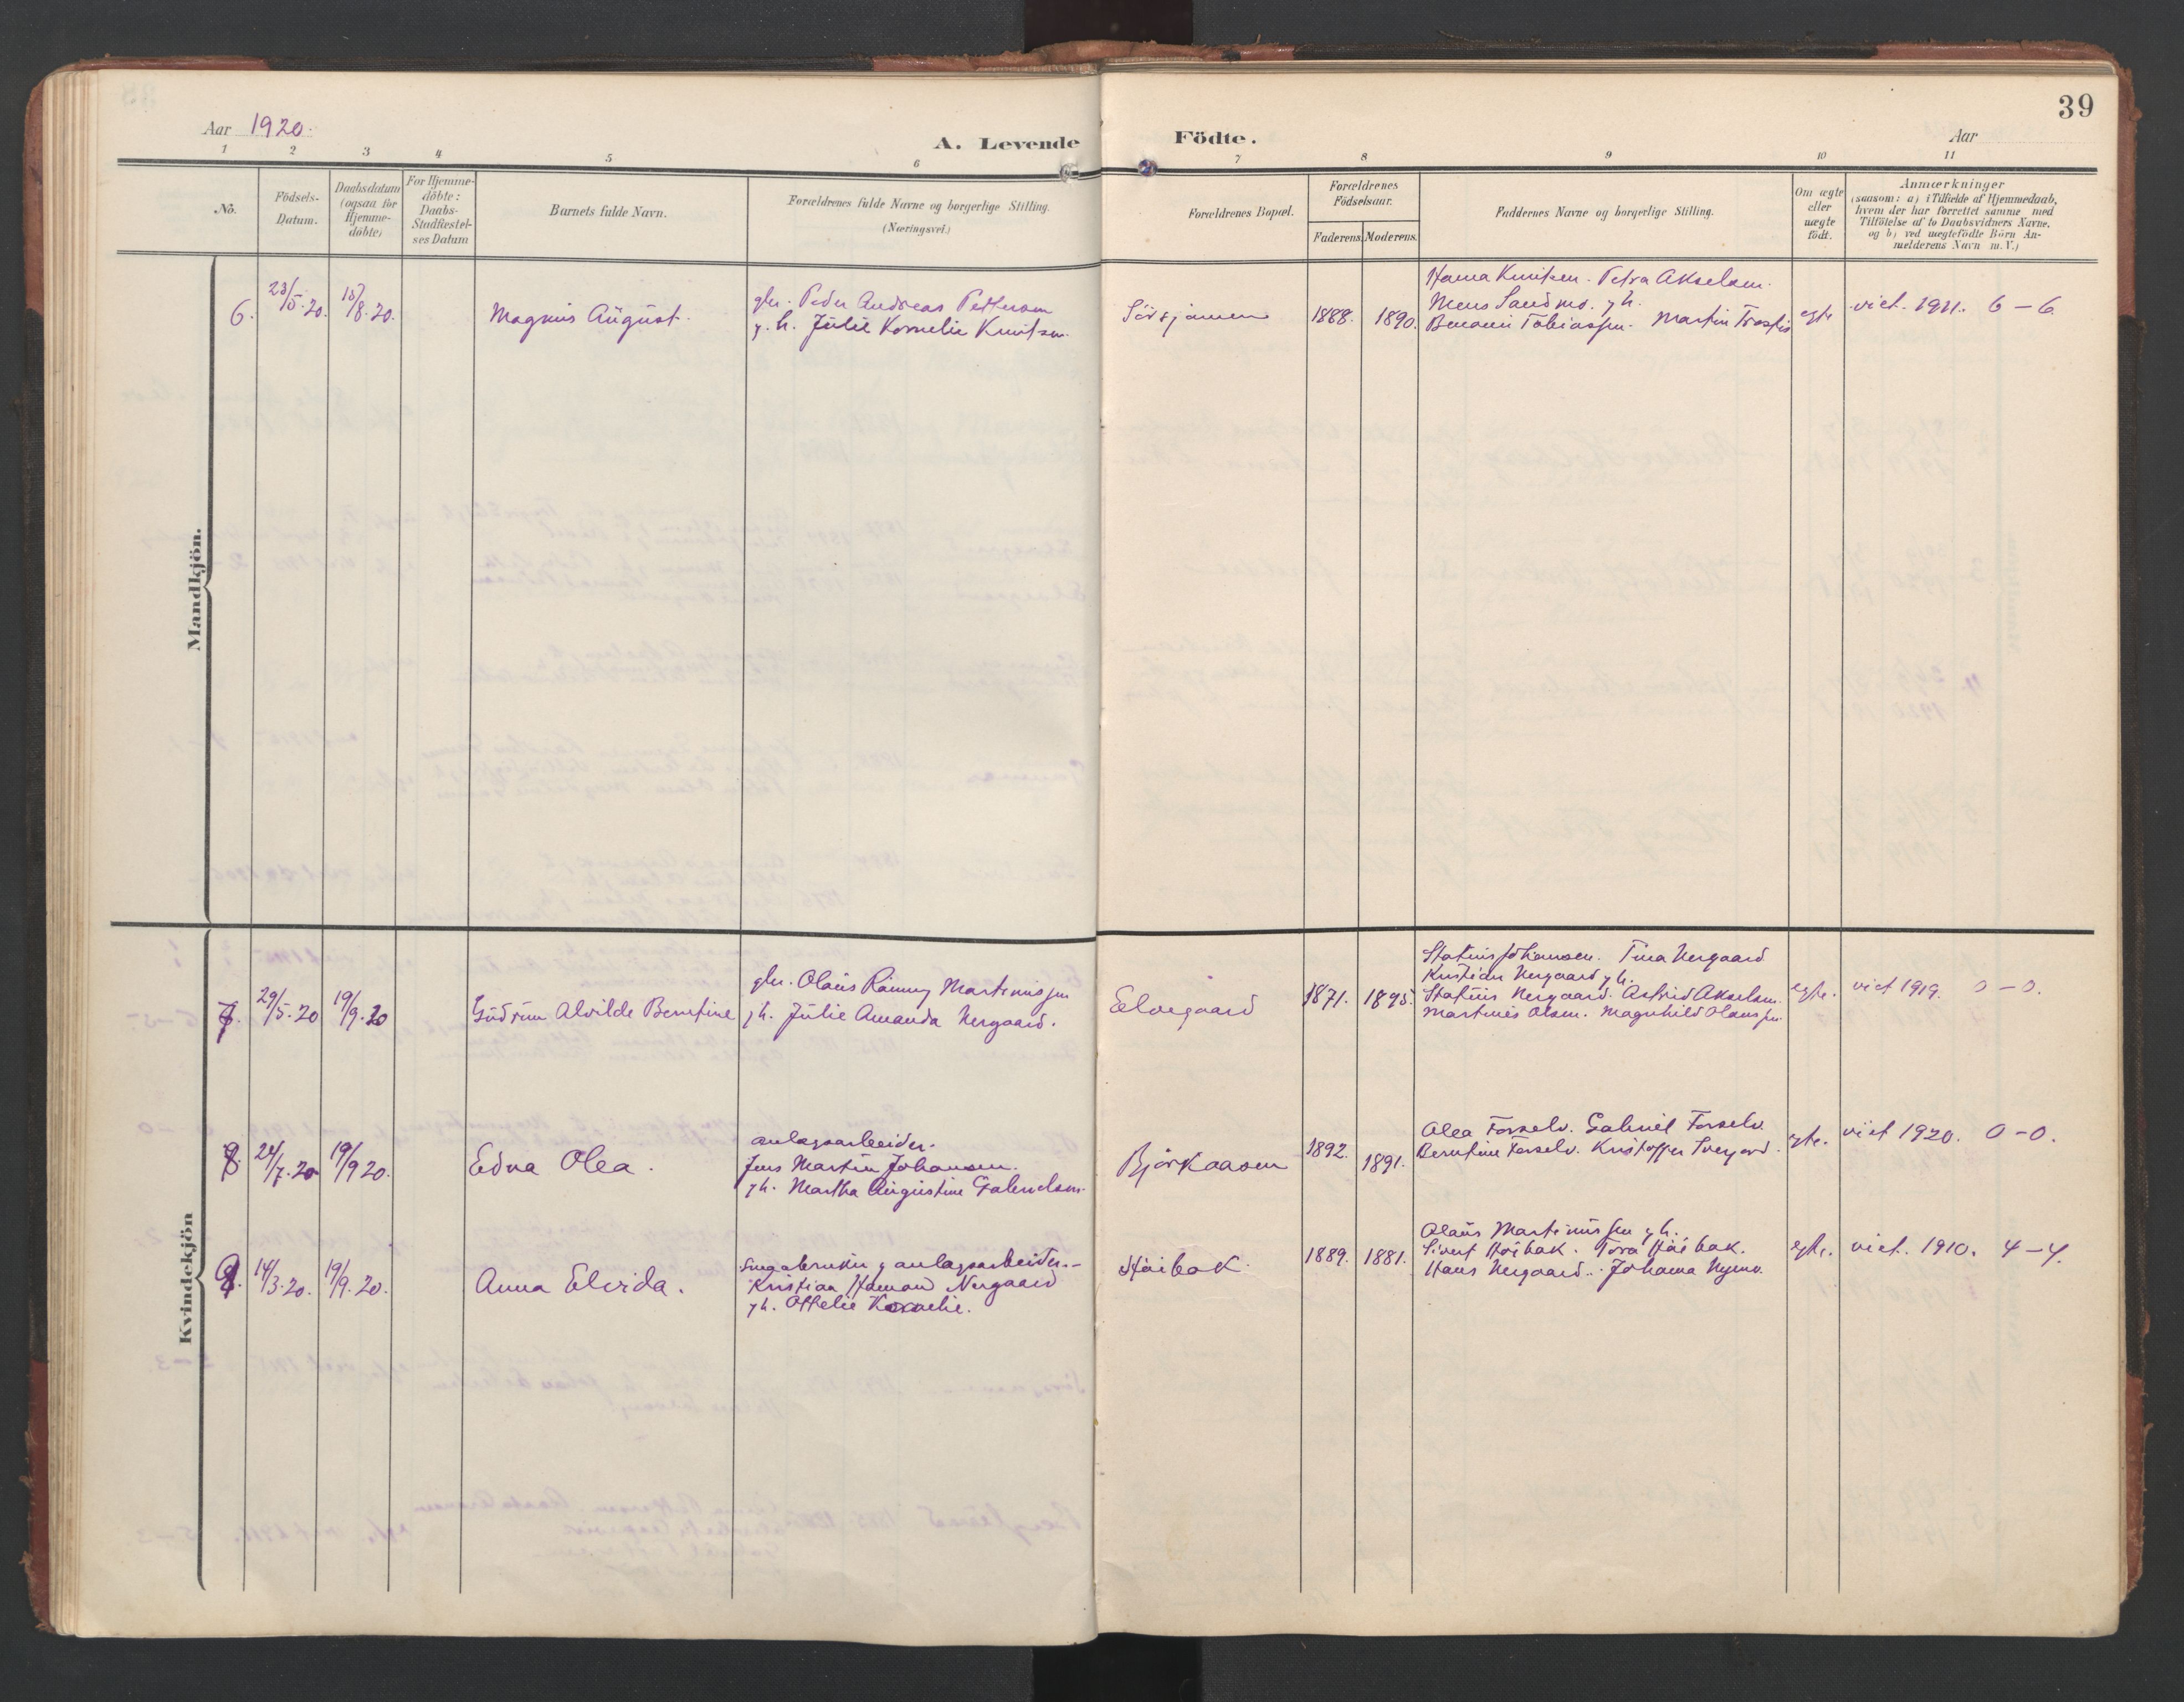 39
Aar 1920.
A. Levende Födte.
Aar
1 2 3 4 5 6 7 8 9 10 11
No.
Födsels-
Datum.
Daabsdatum
(ogsaa for
Hjemme-
döbte)
For Hjemme-
döbte:
Daabs-
Stadfæstel-
ses Datum
Barnets fulde Navn.
Forældrenes fulde Navne og borgerlige Stilling.
(Næringsvei.)
Forældrenes Bopæl.
Forældrenes
Födselsaar.
Faderens. Moderens.
Faddernes Navne og borgerlige Stilling.
Om ægte
eller
uægte
födt.
Anmærkninger
(saasom: a) i Tilfælde af Hjemmedaab,
hvem der har forrettet samme med
Tilföielse af to Daabsvidners Navne,
og b) ved uægtefödte Börn An-
melderens Navn m. V.)
Mandkjön.
6.
23/5.20.
15/8.20.
Magnus August.
gbr. Peder Andreas Pettersen
g. h. Julie Kornelie Knutsen.
Sörsjaneen
1888. 1890.
Hanna Knutsen. Petra Akselsen.
Mens Sandmo. g h.
Benoni Tobiassen. Martin
egte
viet. 1911. 6 – 6
Kvindekjön
7.
29/5.20
19/9.20
Gudrun Alvilde Berntine
gbr. Olaus Ranny Martinussen
g h. Julie Amanda Nergaard.
Elvegaard
1871. 1895.
Statius Johansen. Tina Nergaard
Kristian Nergaard g h.
Statius Nergaard. Astrid Akselsen.
Martines Olsen. Magnhild Olaussen.
egte.
viet 1919. 0 – 0.
8.
24/7.20
19/9 20.
Edna Olea.
anlagsarbeider.
Jens Martin Johansen.
g h. Martha Augustine Gabrielsen.
Björkaasen
1892. 1891.
Olea Forselv. Gabriel Forselv
Berntine Forselv. Kristoffer
egte.
viet 1920. 0 – 0.
9.
14/3.20.
19/9.20.
Anna Elvida.
anlagsarbeider.
Kristian Haman Nergaard
g h. Ottelie Kornelie.
Höibak.
1889. 1881.
Olaus Martinussen g h.
Sivert Höibak. Tora Höibak.
Hans Nergaard. Johanna Nymo.
egte.
viet. 1910. 4 – 4.